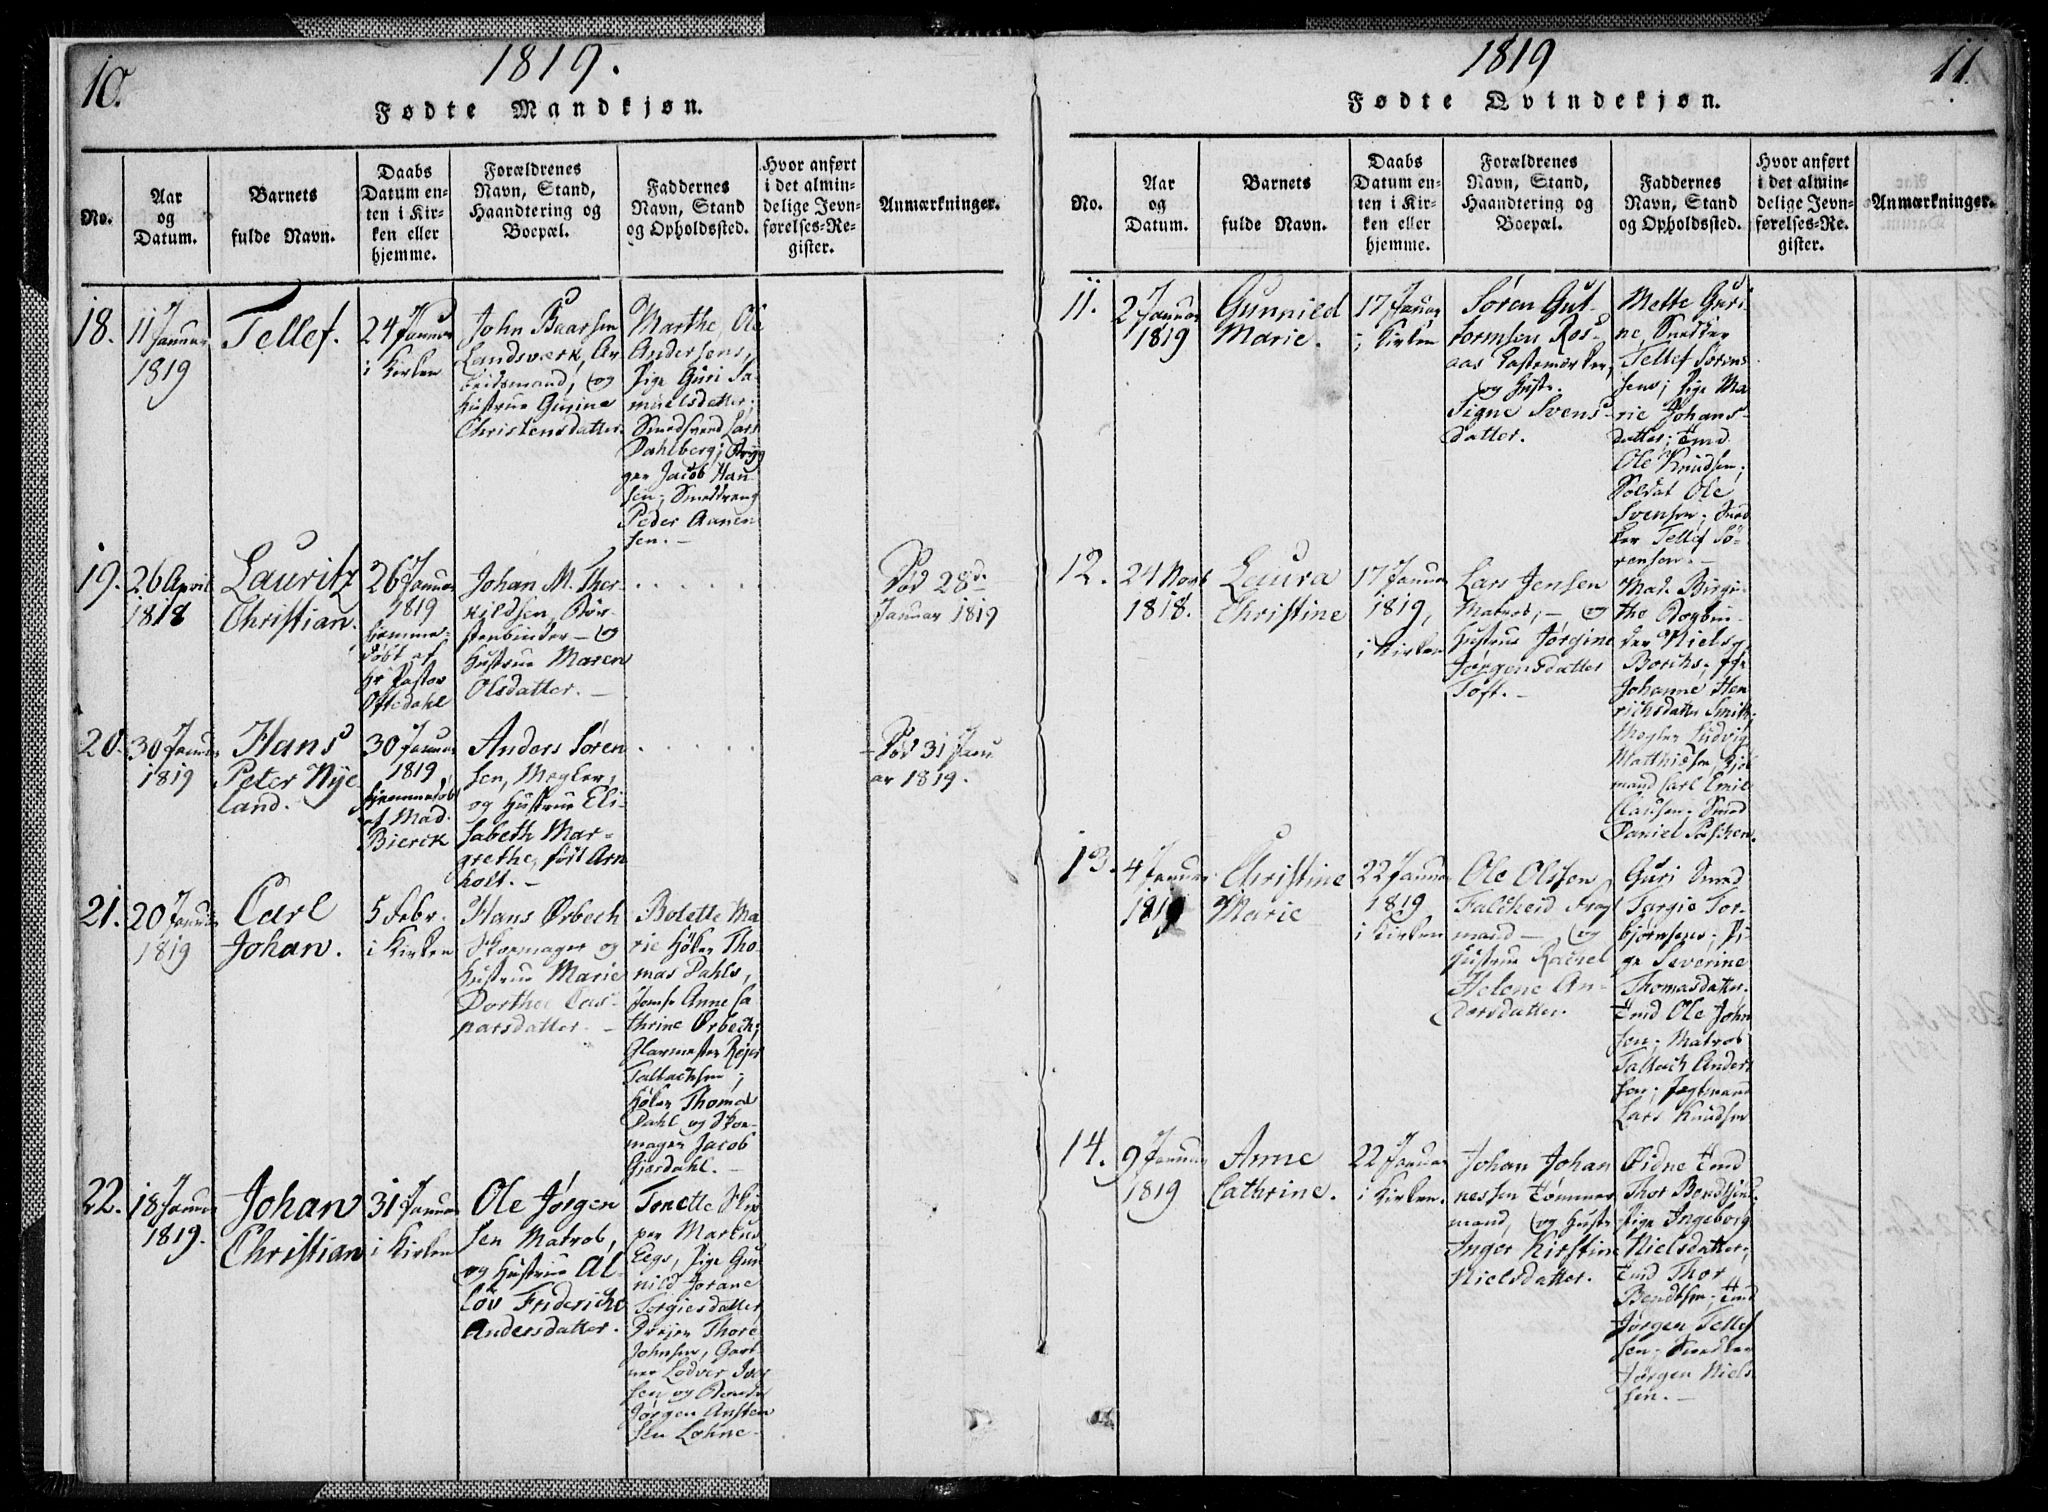 10.
1819.
Fødte Mandkjøn.
No.
Aar
og
Datum.
Barnets
fulde Navn.
Daabs
Datum en-
ten i Kir-
ken eller
hjemme.
Forældrenes
Navn, Stand,
Haandtering og
Boepæl.
Faddernes
Navn, Stand
og Opholdssted.
Hvor anført
i det almin-
delige Jevn-
førelses-Re-
gister.
Anmærkninger.
18.
11 Januar
1819
Tellef.
24 Januar
i Kirken
John Baarsen
Landsværk, Ar
beidsmand, og
Hustrue Gurine
Christensdatter.
Marthe Ole
Andersens,
Pige Guri Sa-
muelsdatter;
Smedsvend Lars
Dahlberg; Brygger
Jacob Han
sen; Smeddreng
Peder Aanen
sen. –
19.
26 April
1818
Lauritz
Christian.
26 Januar
1819
hjemme-
døbt af
Hr Pastor
Oftedahl
Johan M. Ther-
kildsen, Bør-
stenbinder – og
Hustrue Maren
Olsdatter. –
Død 28de
Januar 1819
20.
30 Januar
1819
Hans
Peter Nye
land.
30 Januar
1819
hjemmedøbt
af Mad.
Bierck
Anders Søren
sen, Mægler,
og Hustrue Eli-
sabeth Mar-
grethe, født Arn
holt. –
Død 31 Janu
ar 1819.
21.
20 Januar
1819
Carl
Johan.
5 Febr.
i Kirken
Hans Ørbech
Skomager og
Hustrue Marie
Dorthea Cas-
parsdatter. –
Bolette Ma
rie Høker Tho-
mas Dahls,
Jomfr Anne Ca
thrine Ørbech;
Glarmester Rejer
Tallachsen;
Høker Thomas
Dahl og Skoe-
mager Jacob
Giesdahl. –
22.
18 Januar
1819.
Johan
Christian
31 Januar
i Kirken
Ole Jørgen
sen Matros,
og Hustrue Al-
lov Frideriche
Andersdatter.
Tonette Skip
per Markus
Eegs, Pige Gun
nild Jorane
Torgiesdatter
Drejer Thore
Johnsen, Gart
ner Lodver Iver
sen og Bonde
Jørgen Ansten
sen Lohne –
1819
11.
Fødte Qvindekjøn.
No.
Aar
og
Datum.
Barnets
fulde Navn.
Daabs
Datum en-
ten i Kir-
ken eller
hjemme.
Forældrenes
Navn, Stand,
Haandtering og
Boepæl.
Faddernes
Navn, Stand
og Opholdssted.
Hvor anført
i det almin-
delige Jevn-
førelses-Re-
gister.
Anmærkninger.
11.
2 Januar
1819
Gunnild
Marie.
17 Januar
i Kirken
Søren Gut-
tormsen Ros-
aas
og Hustr.
Signe Svens-
datter.
Mette Guri
ne, Snedker
Tellef Sørens
sens; Pige Ma
rie Johans-
datter; Tmd
Ole Knudsen;
Soldat Ole
Svensen; Sned
ker Tellef Sø-
rensen. –
12.
24 Novb
1818.
Laura
Christine
17 Januar
1819,
i Kirken
Lars Jensen
Matros, – og
Hustrue Jørgine
Jørgensdatter
Toft. –
Mad. Birgi-
the Bogbin-
der Niels
Borchs, Pige
Johanne Hen
richsdatter Smith;
Mægler Ludvig
Matthisen,
mand Carl Emil
Clausen; Smed
Daniel Paschen.
13.
4 Januar
1819
Christine
Marie
22 Januar
1819
i Kirken
Ole Olsen
Faldheid Fragt
mand – og
Hustrue Rachel
Helene An-
dersdatter.
Guri Smed
Torgie Tor-
bjørnsens; Pi-
ge Severine
Thomasdatter.
Tmd Ole John
sen; Matros
Tallach Anders
sen; Jagtmand
Lars Knudsen
14.
9 Januar
1819
Anne
Cathrine.
22 Januar
i Kirken.
Johan Johan
nessen Tømmer
mand, og Hustr
Inger Kirstine
Nielsdatter.
Øidne Tmd
Thor Bendtsens;
Pige Ingeborg
Nielsdatter,
Tmd Thor
Bendtsen; Tmd
Jørgen Tellef
sen; Snedker
Jørgen Niels
sen. –